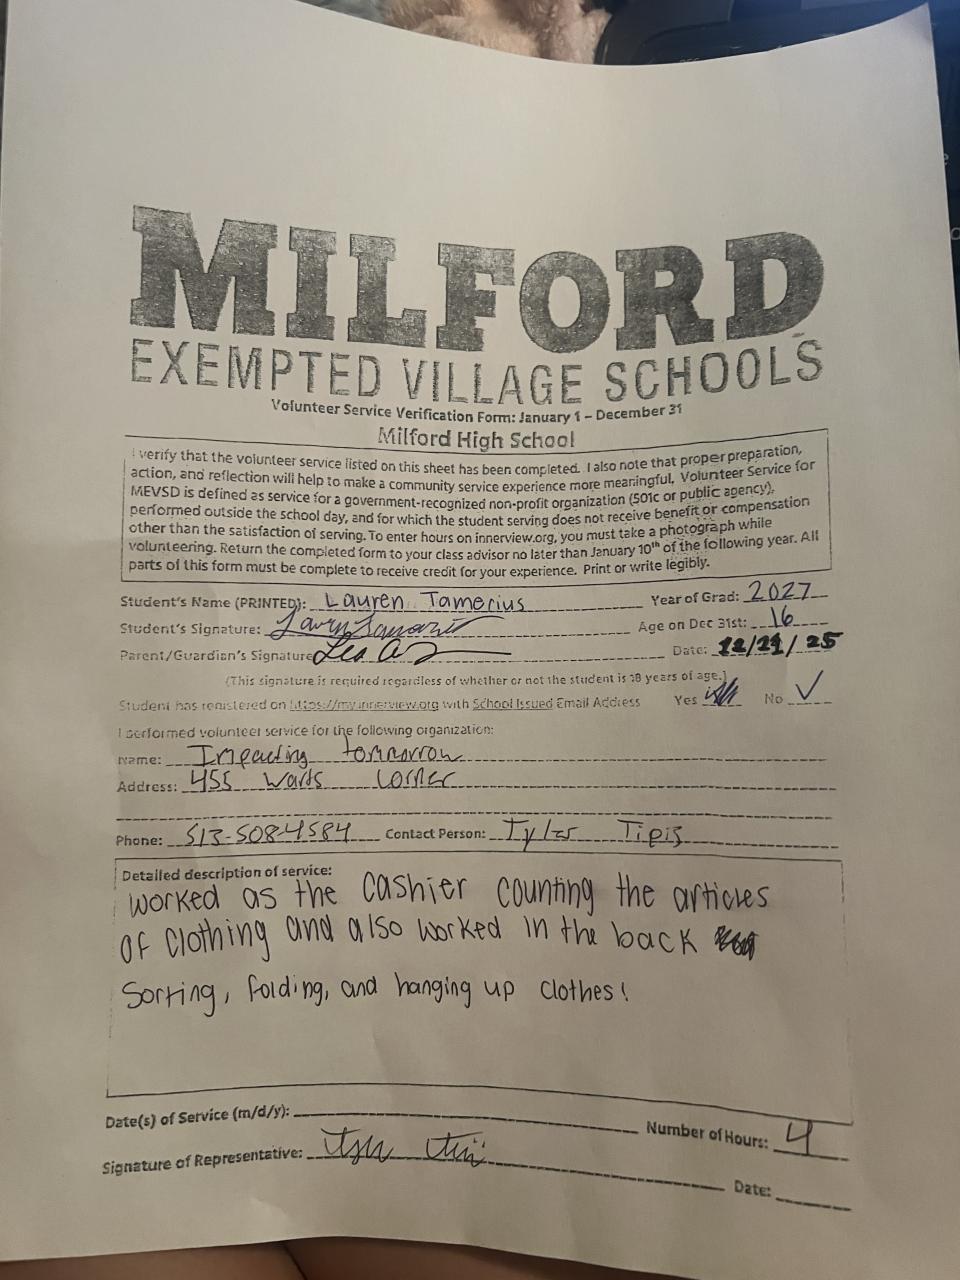 MILFORD
EXEMPTED VILLAGE SCHOOLS
Volunteer Service Verification Form: January 1 – December 31
Milford High School
I verify that the volunteer service listed on this sheet has been completed. I also note that proper preparation,
action, and reflection will help to make a community service experience more meaningful. Volunteer Service for
MEVSD is defined as service for a government-recognized non-profit organization (501c or public agency),
performed outside the school day, and for which the student serving does not receive benefit or compensation
other than the satisfaction of serving. To enter hours on innerview.org, you must take a photograph while
volunteering. Return the completed form to your class advisor no later than January 10th of the following year. All
parts of this form must be complete to receive credit for your experience. Print or write legibly.
Student's Name (PRINTED): Lauren Tamerius Year of Grad: 2027
Student's Signature: Age on Dec 31st: 16
Parent/Guardian's Signature Date: 12/21/25
(This signature is required regardless of whether or not the student is 18 years of age.)
Student has registered on https://my.innerview.org with School Issued Email Address Yes No ✓
I performed volunteer service for the following organization:
Name: Impacting tommorrow
Address: 455 Wards corner
Phone: 513-508-4584 Contact Person: Tyler
Detailed description of service:
worked as the cashier counting the articles
of clothing and also worked in the back
Sorting, folding, and hanging up clothes!
Date(s) of Service (m/d/y): Number of Hours: 4
Signature of Representative: Date: